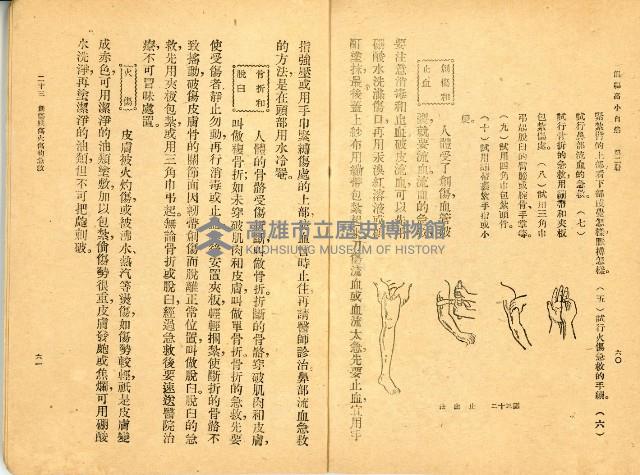 緊紮時的上部看下部皮膚怎樣脹得怎樣。(五)試行火傷急救的手續。(六)
試行鼻部流血的急救。(七)
試行骨折的急救用繃帶和夾板
包紮傷處。(八)試用三角巾
弔起脫臼的臂膀或腕骨手掌等。
(九)試用四角巾包紮頭部。
(十)試用繃帶裹紮手指或小
腿。
創傷和
止血
人體受了創傷,血管破
裂,就要流血。流血的急救,
要注意消毒和止血。破皮流血,可以先用
硼酸水洗滌傷口,再用汞溴紅溶液或碘
酊塗抹,最後蓋上紗布,用繃帶包紮。
流血或血流太急,先要止血,宜用手
圖二十二 止血法
六〇
指強壓或用手巾緊縛傷處的上部,使血暫時止住,再請醫師診治。鼻部流血,急救
的方法,是在頭部用水冷罨。
骨折和
脫臼
人體的骨骼受傷折斷,叫做骨折。折斷的骨骼,穿破肌肉和皮膚,
叫做複骨折;如未穿破肌肉和皮膚,叫做單骨折。骨折的急救,先要
使受傷者靜止勿動,再行消毒或止血,然後安置夾板,輕輕捆紮,使斷折的骨骼不
致搖動,破傷皮膚。骨的關節面因韌帶創傷而脫離正常位置,叫做脫臼。脫臼的急
救,先用夾板包紮,或用三角巾弔起。無論骨折或脫臼,經過急救後,要速送醫院治
療,不可冒昧處置。
火 傷
皮膚被火灼傷或被沸水、蒸汽等燙傷,如傷勢較輕,祇是皮膚變
成赤色,可用潔淨的油類塗敷,加以包紮。倘傷勢很重,皮膚發皰或焦爛,可用硼酸
水洗淨,再塗潔淨的油類,但不可把皰刺破。
二十三 創傷脫臼火傷和急救
六一
高雄市立歷史博物館
KAOHSIUNG MUSEUM OF HISTORY